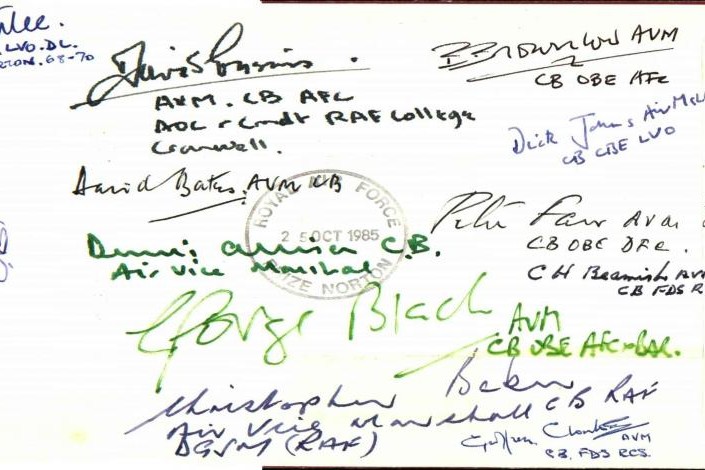 LVO.DL.
68-70
David Cousins
AVM. CB AFC
AOC & Cmdt RAF College
Cranwell.
B Brownlow AVM
CB OBE AFC
Dick Johns Air
CB CBE LVO
David Bates. AVM CB
ROYAL AIR FORCE
25 OCT 1985
BRIZE NORTON
Dennis Allison C.B.
Air Vice Marshal
Peter Fair AVM
CB OBE DFC.
C H Beamish AVM
CB FDS
George Black
AVM
CB OBE AFC + BAR.
Christopher Baker
Air Vice Marshall CB RAF
DGSM (RAF)
AVM
CB, FDS RCS.